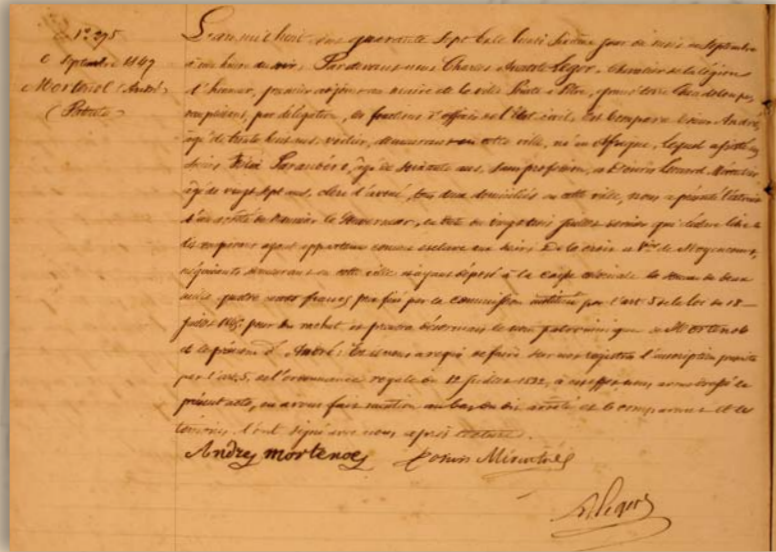 N.º 295
6 Septembre 1847
Mortenol (André)
(Patente)
L'an mil huit cent quarante sept et le lundi sixième jour du mois de Septembre
à une heure du soir, Pardevant nous Charles Auguste Léger, chevalier de la légion
d'honneur, premier adjoint au maire de la ville Pointe à Pitre, grande terre Guadeloupe,
remplissant, par délégation, les fonctions d'officier de l'État civil, est comparu le sieur André,
âgé de trente huit ans, voilier, demeurant en cette ville, né en Afrique, lequel assisté des
sieurs Félix âgé de soixante ans, sans profession, et Dorvin Mérentié
âgé de vingt sept ans, clerc d'avoué, tous deux domiciliés en cette ville, nous a présenté l'extrait
d'un arrêté de Monsieur le Gouverneur, en date du vingt trois juillet dernier qui déclare libre
le comparant ayant appartenu comme esclave aux sieurs De la croix et de Moyencourt,
négociants demeurant en cette ville et ayant déposé à la caisse coloniale la somme de deux
mille quatre cents francs prix fixé par la commission instituée par l'art 5 de la loi du 18
juillet 1845 pour son rachat, et prendra désormais le nom patronimique de Mortenol
et le prénom d'André: Et il nous a requis de faire sur nos registres l'inscription prescrite
par l'art. 5, de l'ordonnance royale du 12 juillet 1832, à cet effet nous avons dressé le
présent acte, où avons fait mention au bas du dit arrêté et le comparant et les
témoins l'ont signé avec nous après lecture.
Andrez mortenol Dorvin Mérentié
A. Léger